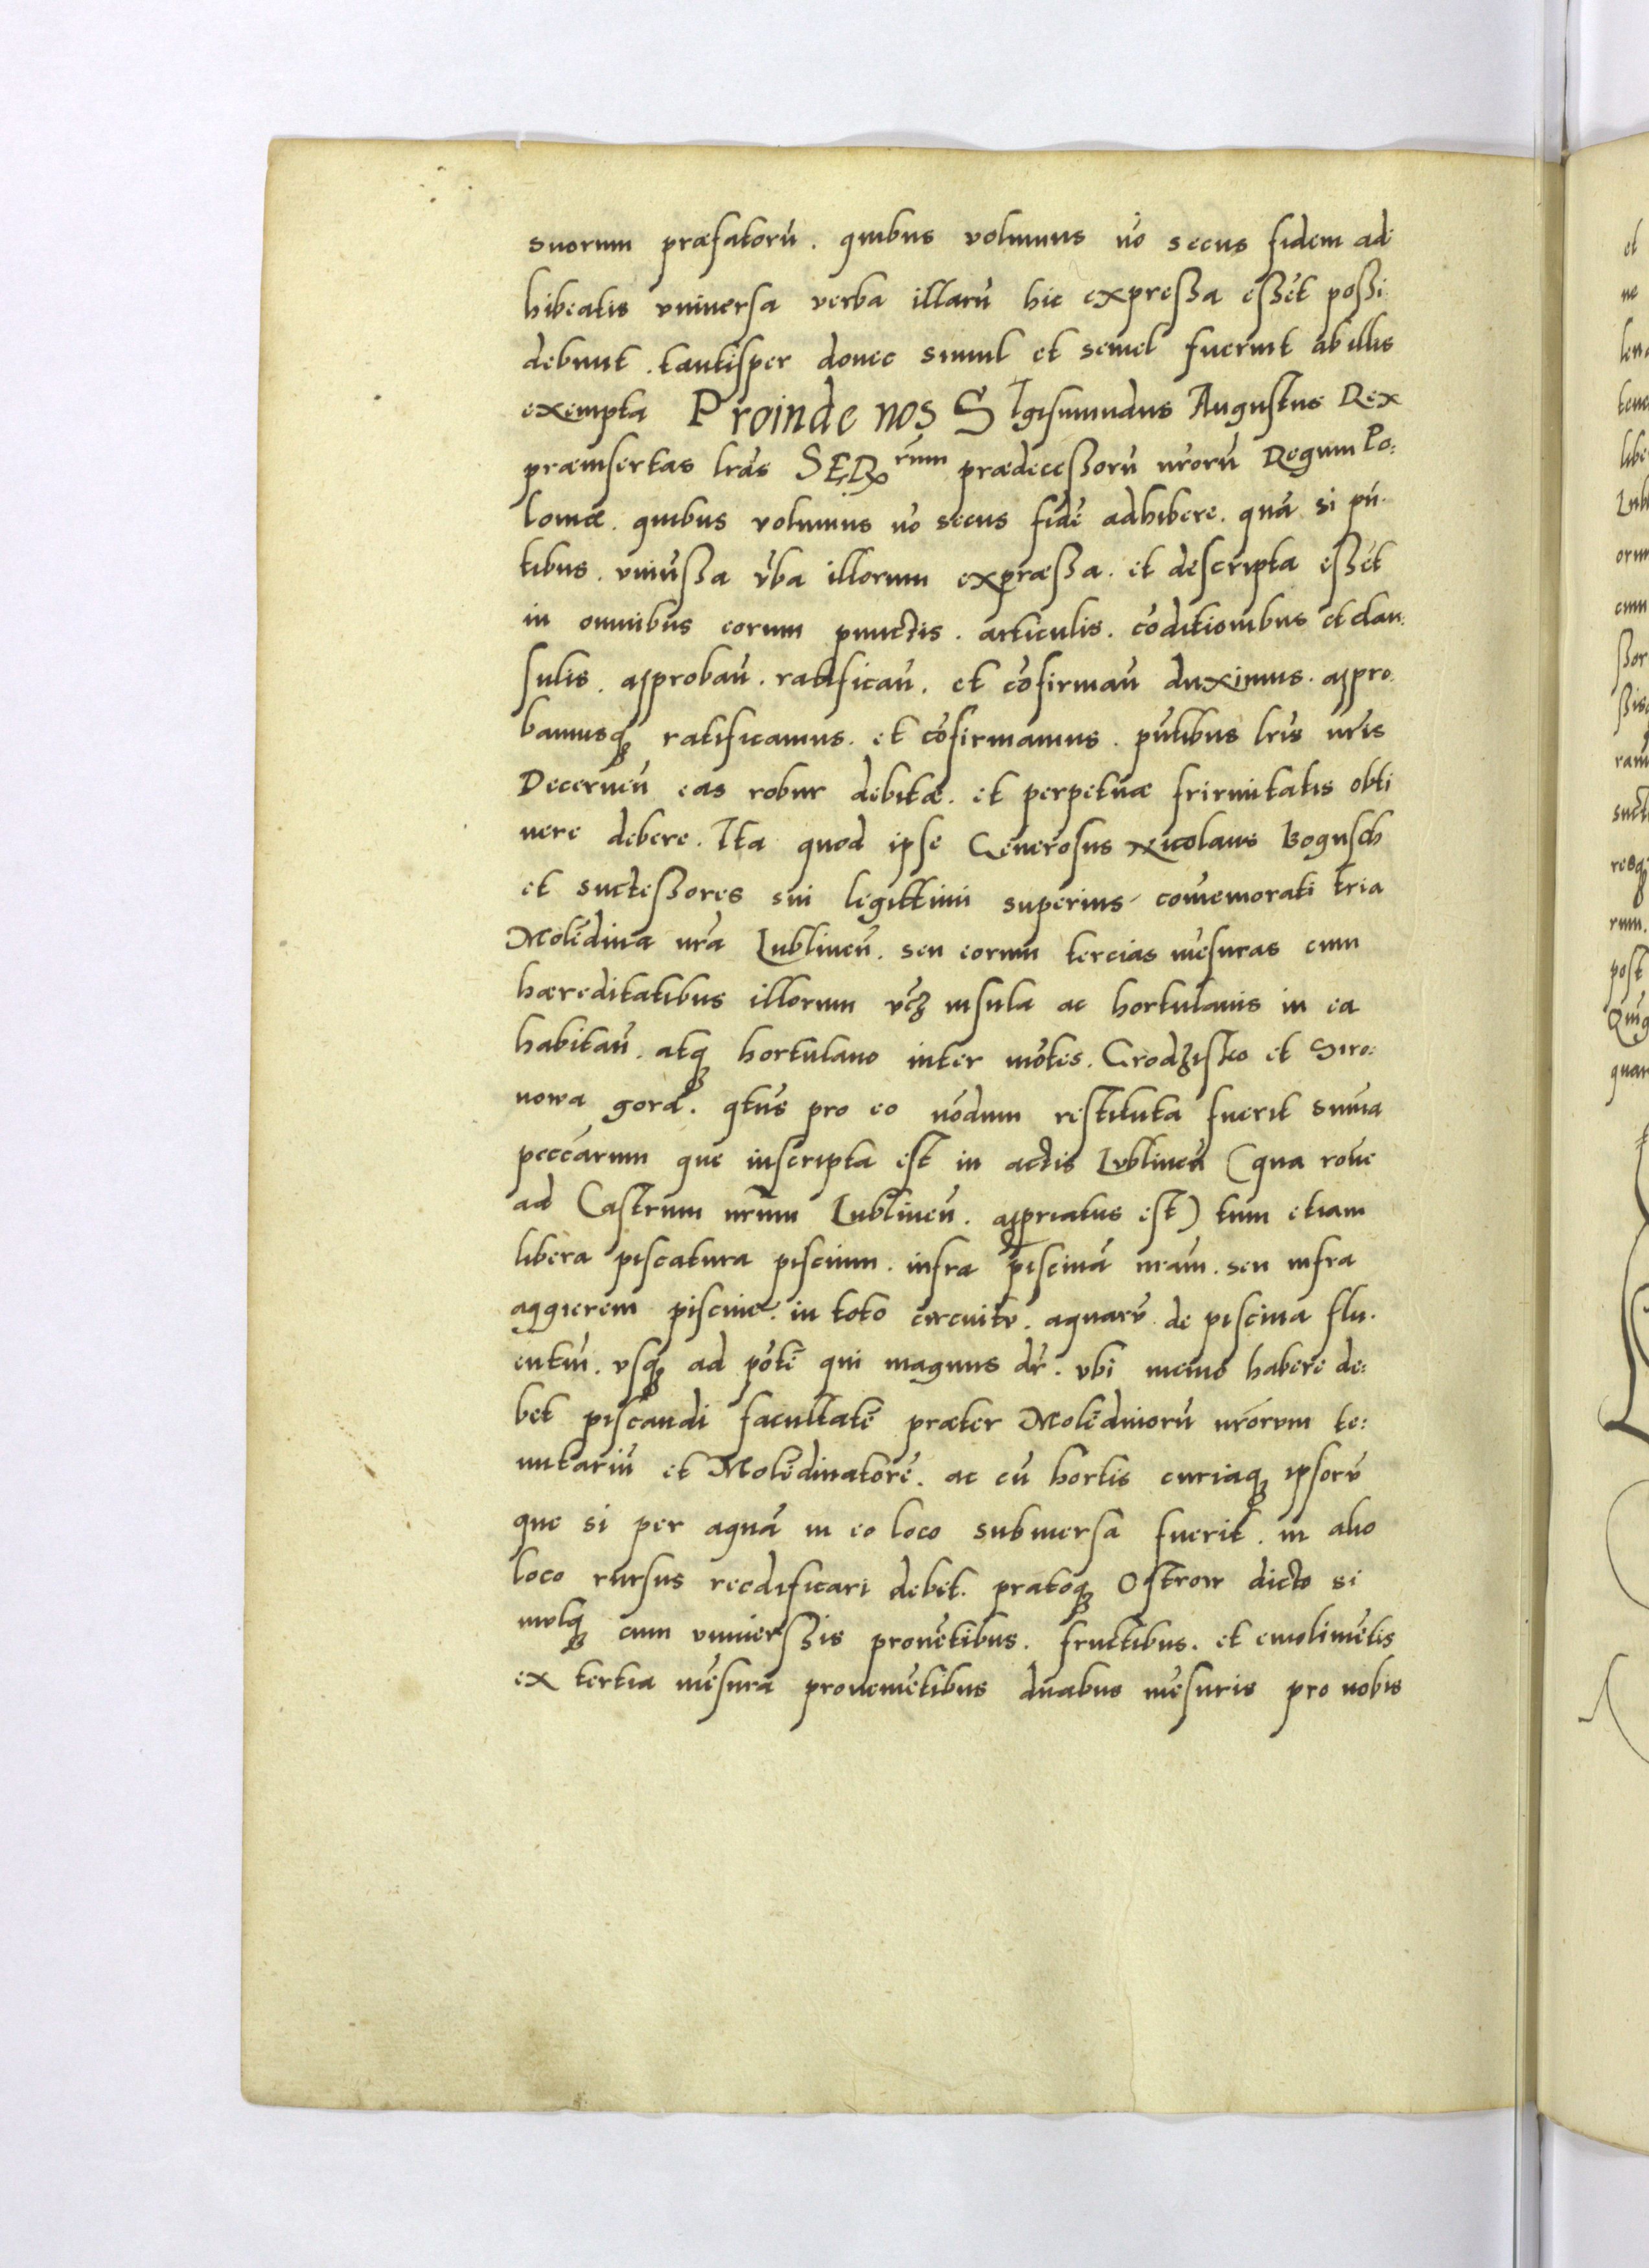 suorum præfatorū. quibus volumus nō secus fidem ad
hibeatis vniuersa verba illarū hic expressa essēt possi
debunt. tantisper donec simul et semel fuerint ab illis
exempta Proinde nos SIgismundus Augustus Rex
præinsertas lrās SERrūm prædecessorū nrōrū Regum Po:
loniæ. quibus volumus nō secus fidē adhibere. quā si pn̄
tibus. vniūssa v̄ba illorum expræssa. et descripta essēt
in omnibus eorum punctis. articulis. cōditionibus et clau:
sulis. approbān. ratificān. et cōfirmān duximus. appro
bamusq̨ ratificamus. et cōfirmamus. pn̄tibus lrīs nrīs
Decernēn eas robur debitæ. et perpetuæ frirmitatis obti
nere debere. Ita quod ipse Generosus Nicolaus Bogusch
et suctessores sui legittimi superius comemorati tria
Molēdina nrā Lublineń. seu eorum tercias mēsuras cum
hæreditatibus illorum vcz insula ac hortulanis in ea
habitań. atq̨ hortulano inter mōtes. Grodzisko et Siro:
nowa gora. qtūs pro eo nōdum restituta fuerit summa
peccēarum que inscripta est in actis Lublineń (qua rōne
ad Castrum nrūm Lublineń. appriatus est) tum etiam
libera piscatura piscium. infra piscinā nrām. seu infra
aggierem piscine. in toto circuitu. aquarū de piscina flu.
entiū. vsq̨ ad pōtē qui magnus dr̄. vbi nemo habere de:
bet piscandi facultatē præter Molēdinorū nrōrum te:
nutariū et Molēdinatorē. ac cū hortis curiaq̨ ipsorū
que si per aquā in eo loco submersa fuerit. in alio
loco rursus reedificari debet. pratoq̨ Ostrow dicto si
mulq̨ cum vniuerssis prouētibus. fructibus. et emolimētis
ex tertia mēsura prouenietibus duabus mēsuris pro nobis